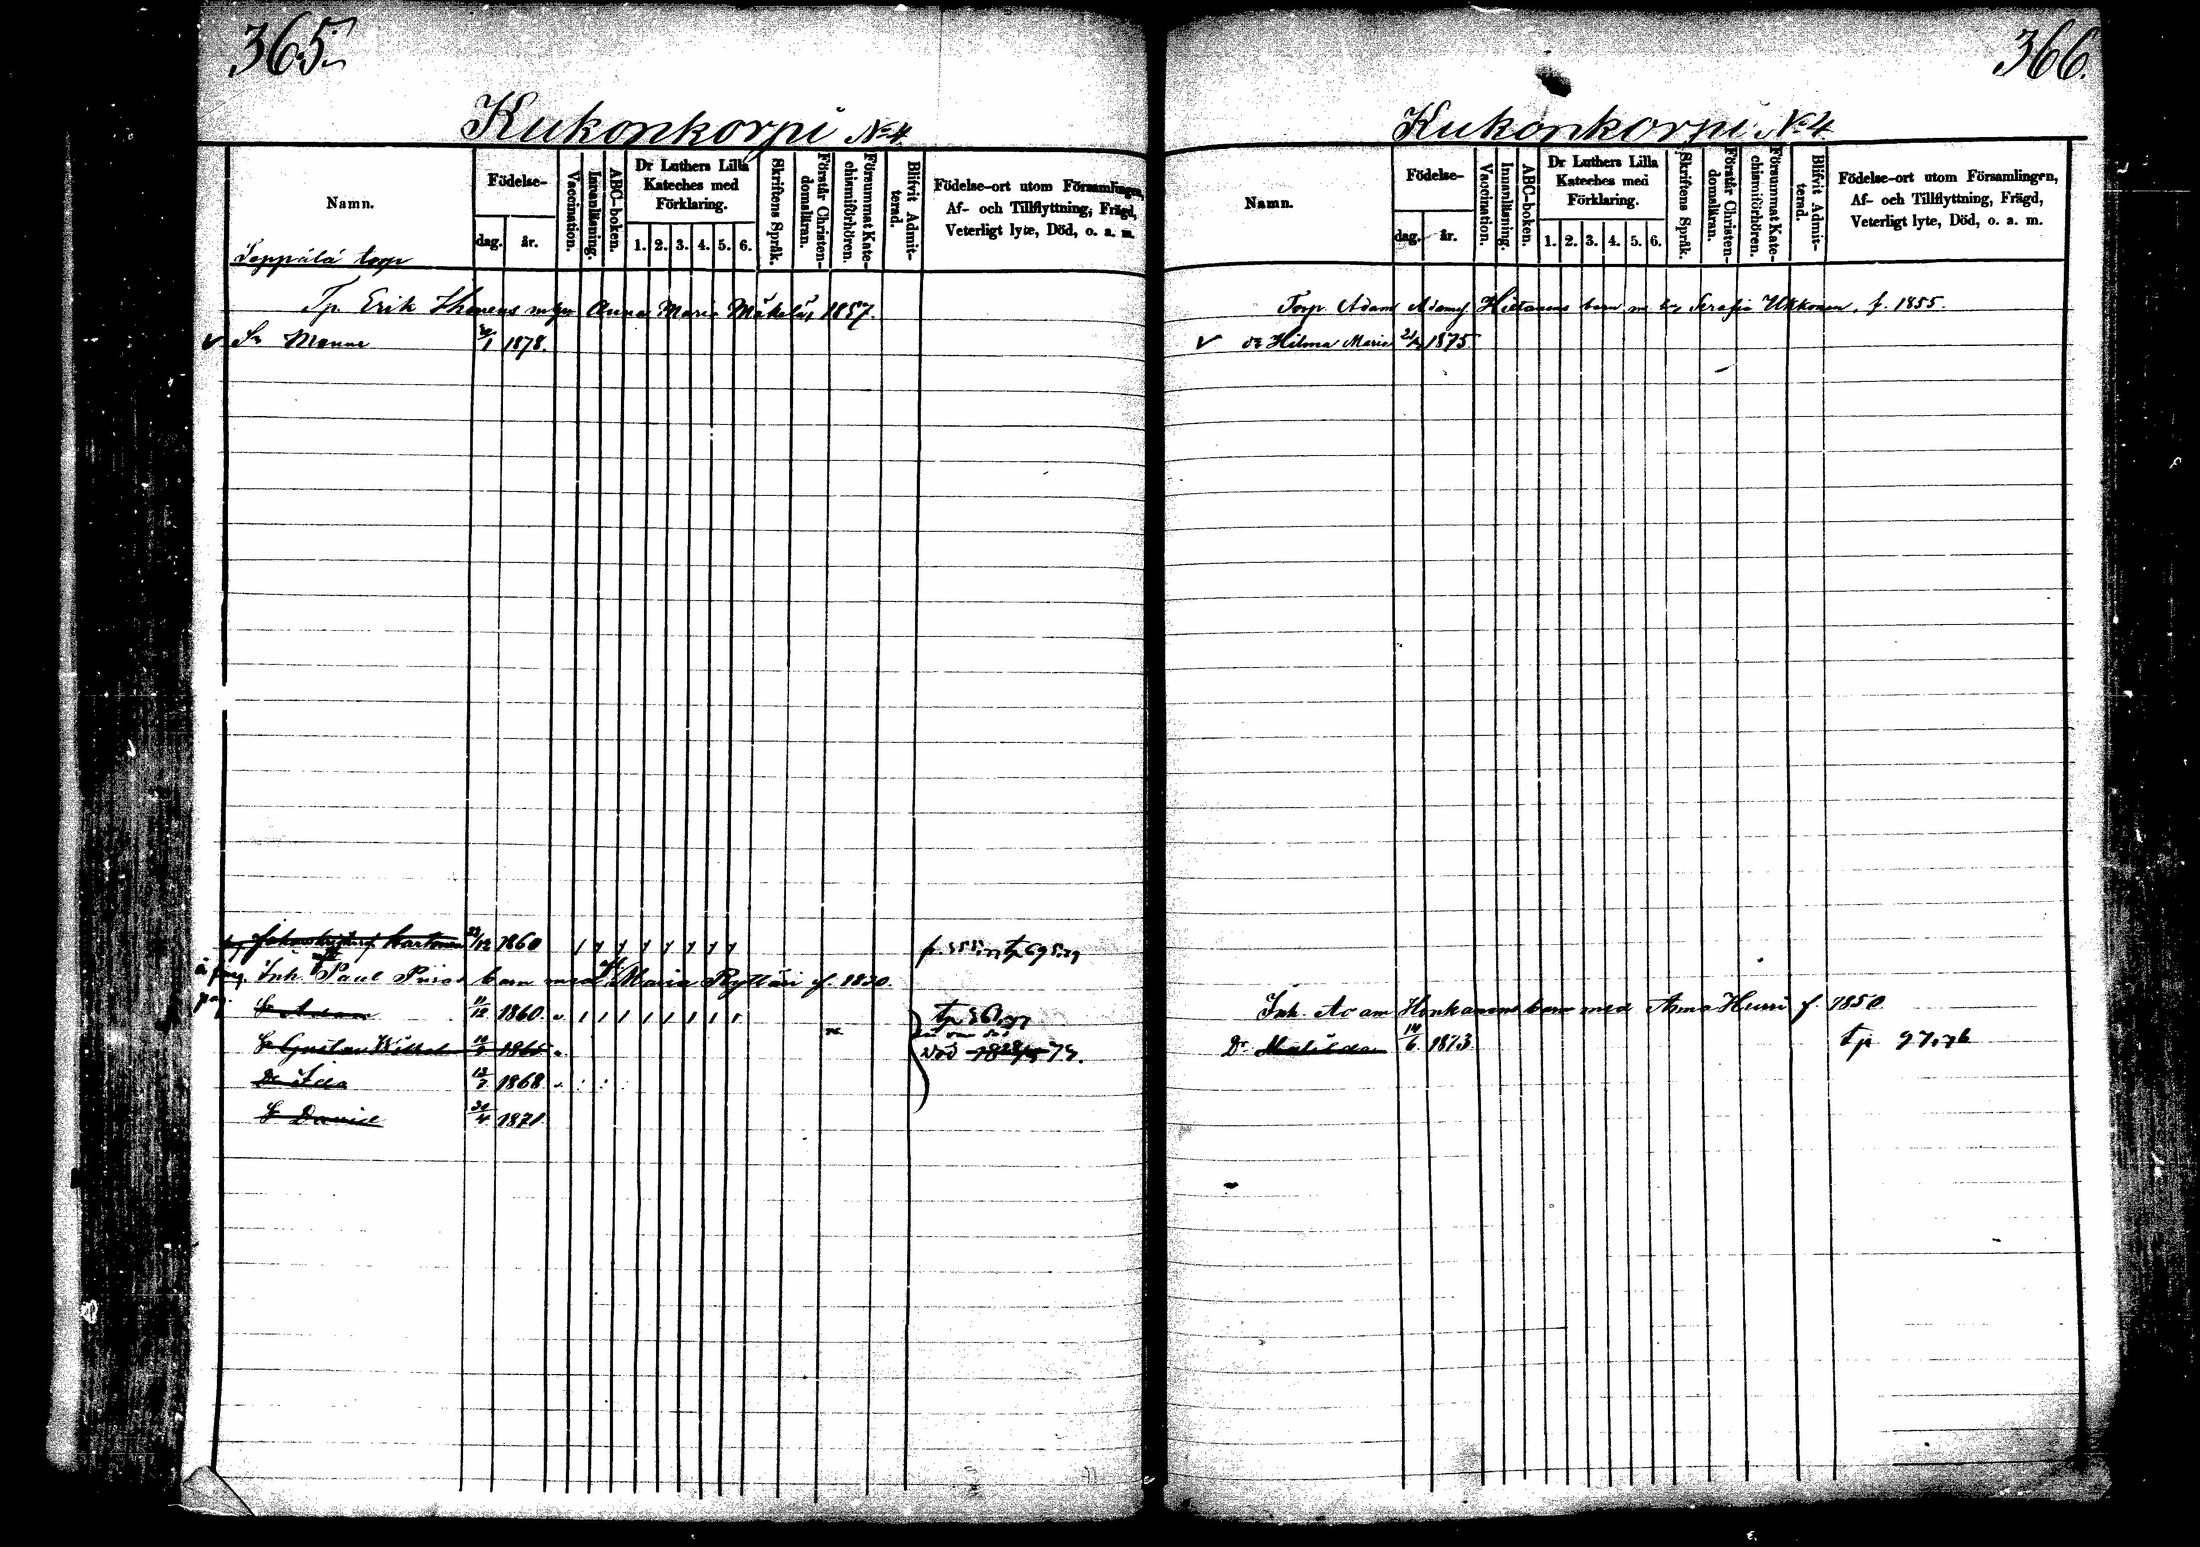 365
Kukonkorpi No 4.
Namn.
Födelse-
dag.
år.
Vaccination.
Innanläsning.
ABC-boken.
Dr Luthers Lilla
Kateches med
Förklaring.
1. 2. 3. 4. 5. 6.
Skriftens Språk.
Förstår Christen-
domsläran.
Försummat Kate-
chismiförhören.
Blifvit Admit-
terad.
Födelse-ort utom Församlingen,
Af- och Tillflyttning, Frägd,
Veterligt lyte, Död, o. a. m.
Seppälä torp
Tp. Erik Ihonens m hu Anna Maria Mäkelä, 1857.
✓ Sn Manne 1878.
23/12 1860
Inh. Paul barn med Maria Ryttäri f. 1830.
Sn Adam 11/12 1860.
Sn Gustav Wilhel
Dr Ida 13/7 1868
Sn Daniel 30/4 1871.
366.
Kukonkorpi No 4
Namn.
Födelse-
dag.
år.
Vaccination.
Innanläsning.
ABC-boken.
Dr Luthers Lilla
Kateches med
Förklaring.
1. 2. 3. 4. 5. 6.
Skriftens Språk.
Förstår Christen-
domsläran.
Försummat Kate-
chismiförhören.
Blifvit Admit-
terad.
Födelse-ort utom Församlingen,
Af- och Tillflyttning, Frägd,
Veterligt lyte, Död, o. a. m.
Torp. Adam Adamsf. Hietanens barn m. hu Serafia Ukkonen, f. 1855.
✓ Dr Hilma Maria 1875
Inh. Adam Honkanens barn med Anna Heurri f. 1850
Dr Matilda 14/6 1873. tp 97.76